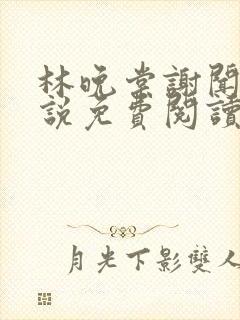 林晚棠謝聞
說免費閱讀
月光下影雙人